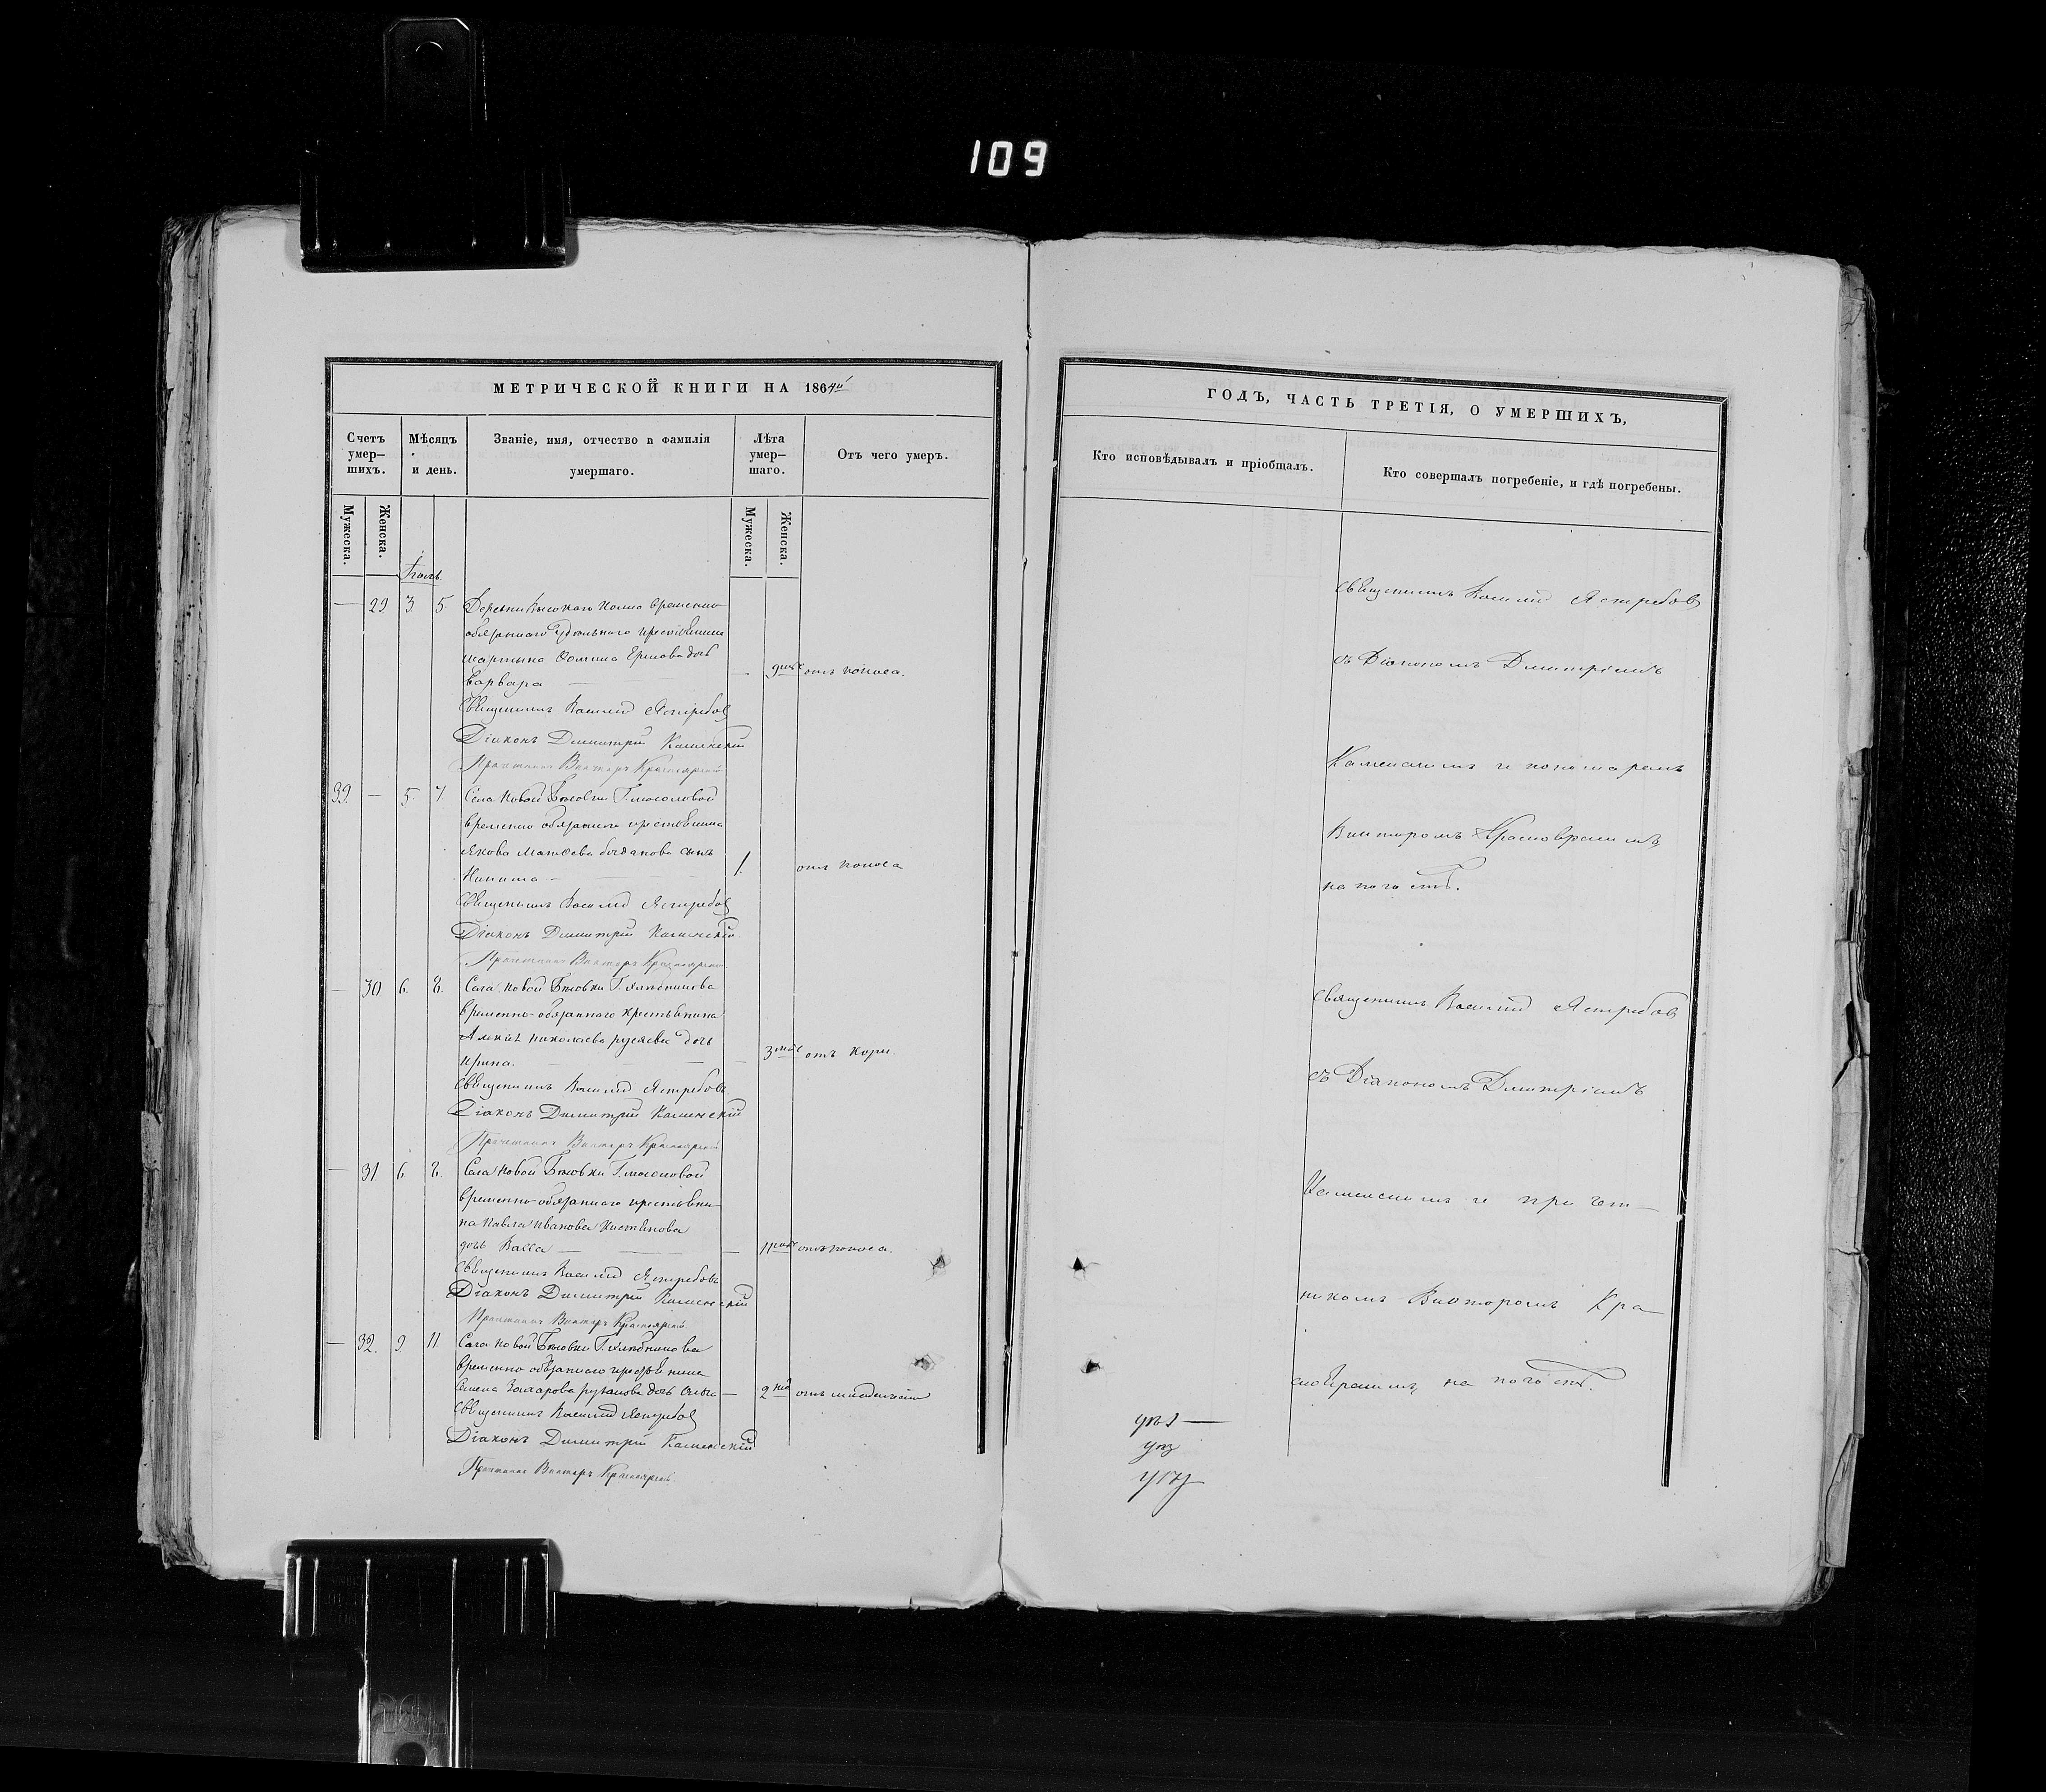 109
МЕТРИЧЕСКОЙ КНИГИ НА 1864й
Счетъ умер-шихъ.
Мѣсяцъ и день.
Званіе, имя, отчество и фамилія умершаго.
Лѣта умер-шаго.
Отъ чего умеръ.
Мужеска.
Женска.
Мужеска.
Женска.
Іюль.
— 29. 3. 5. Деревни временно
обязаннаго удѣльнаго крестьянина
Мартына Фомина Ершова дочь
Варвара — — 9 отъ поноса.
Священникъ Василій Ястребовъ
Діаконъ Димитрій Каменскій
Причетникъ Викторъ Красноярскій
39. — 5. 7. Села Новой Г. Мосоловой
временно обязаннаго крестьянина
Якова Матѳеева сынъ
Никита — 1. отъ поноса
Священникъ Василій Ястребовъ
Діаконъ Димитрій Каменскій
Причетникъ Викторъ Красноярскій
— 30. 6. 8. Села Новой Г.
временно-обязаннаго крестьянина
Николаева дочь
Ирина. — — 3 отъ кори.
Священникъ Василій Ястребовъ
Діаконъ Димитрій Каменскій
Причетникъ Викторъ Красноярскій
— 31. 6. 8. Села Новой Г. Мосоловой
временно-обязаннаго крестьяни-
на Павла Иванова
дочь Васса — — 11 отъ поноса.
Священникъ Василій Ястребовъ
Діаконъ Димитрій Каменскій
Причетникъ Викторъ Красноярскій
— 32. 9. 11. Села Новой Г.
временно обязаннаго крестьянина
Семена Захарова дочь — 2 отъ
Священникъ Василій Ястребовъ
Діаконъ Димитрій Каменскій
Причетникъ Викторъ Красноярскій
ГОДЪ, ЧАСТЬ ТРЕТІЯ, О УМЕРШИХЪ,
Кто исповѣдывалъ и пріобщалъ.
Кто совершалъ погребеніе, и гдѣ погребены.
Священникъ Василій Ястребовъ
съ Діакономъ Димитріемъ
Каменскимъ и пономаремъ
Викторомъ Красноярскимъ
на погостѣ.
Священникъ Василій Ястребовъ
съ Діакономъ Димитріемъ
Каменскимъ и причет-
никомъ Викторомъ Кра-
сноярскимъ на погостѣ.